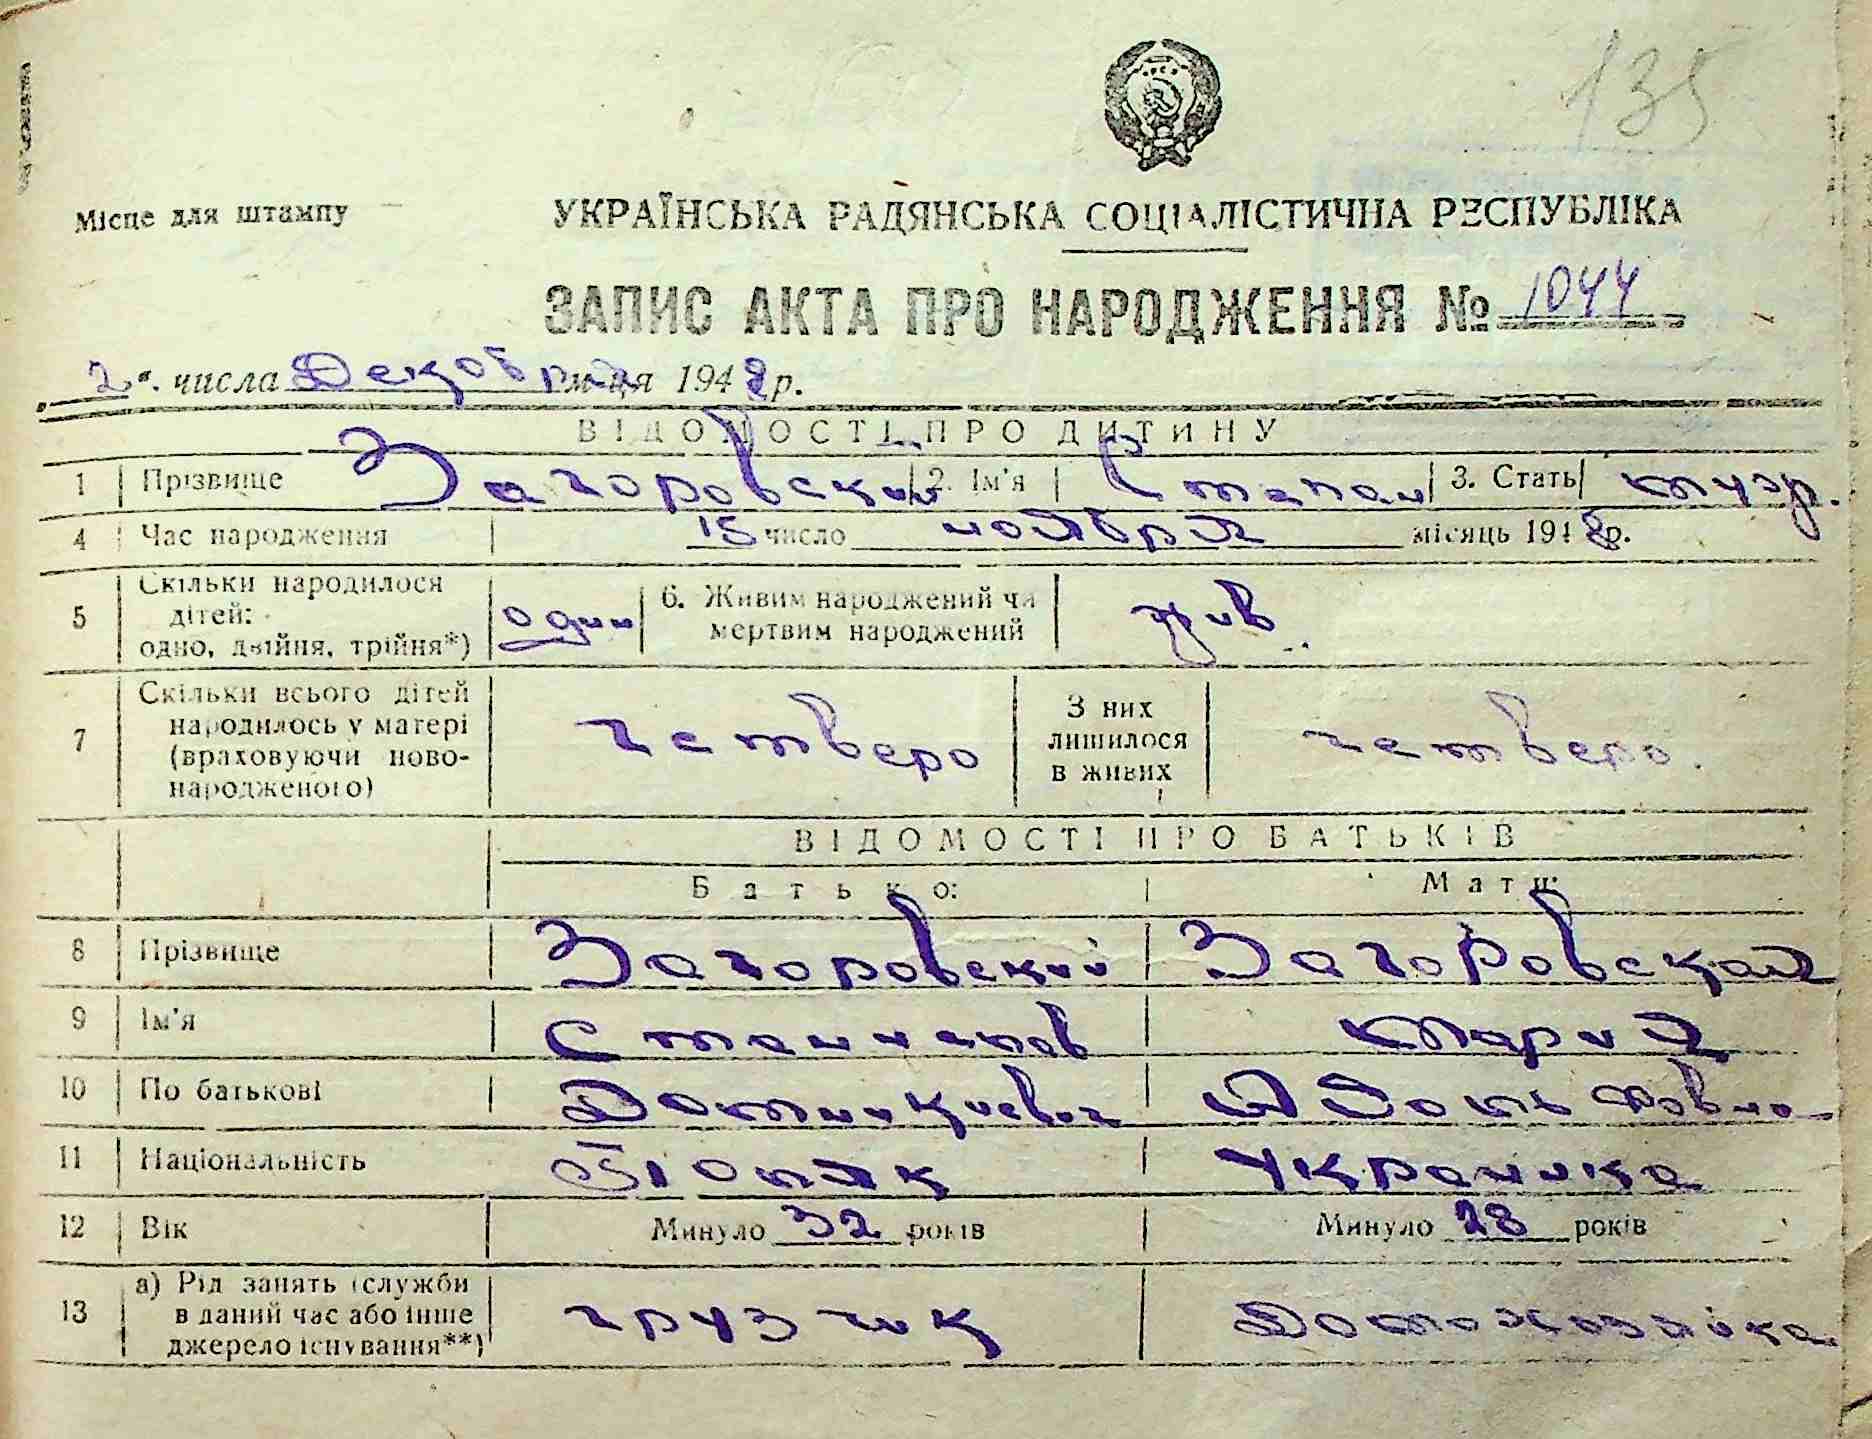 135
Місце для штампу
УКРАЇНСЬКА РАДЯНСЬКА СОЦІАЛІСТИЧНА РЕСПУБЛІКА
ЗАПИС АКТА ПРО НАРОДЖЕННЯ № 1044
2 ". числа Декобря м-ця 1948 р.
ВІДОМОСТІ ПРО ДИТИНУ
1 Прізвище Загоровский 2. Ім'я Степан 3. Стать муж.
4 Час народження 15 число ноября місяць 1948 р.
5 Скільки народилося дітей: одно, двійня, трійня*) один 6. Живим народжений чи мертвим народжений жив
7 Скільки всього дітей народилось у матері (враховуючи новонародженого) четверо З них лишилося в живих четверо.
ВІДОМОСТІ ПРО БАТЬКІВ
Батько: Мати:
8 Прізвище Загоровский Загоровская
9 Ім'я Мария
10 По батькові Доминкиевич Адольфовна
11 Національність Поляк Украинка
12 Вік Минуло 32 років Минуло 28 років
13 а) Рід занять (служби в даний час або інше джерело існування**) грузчик Домохозяйка